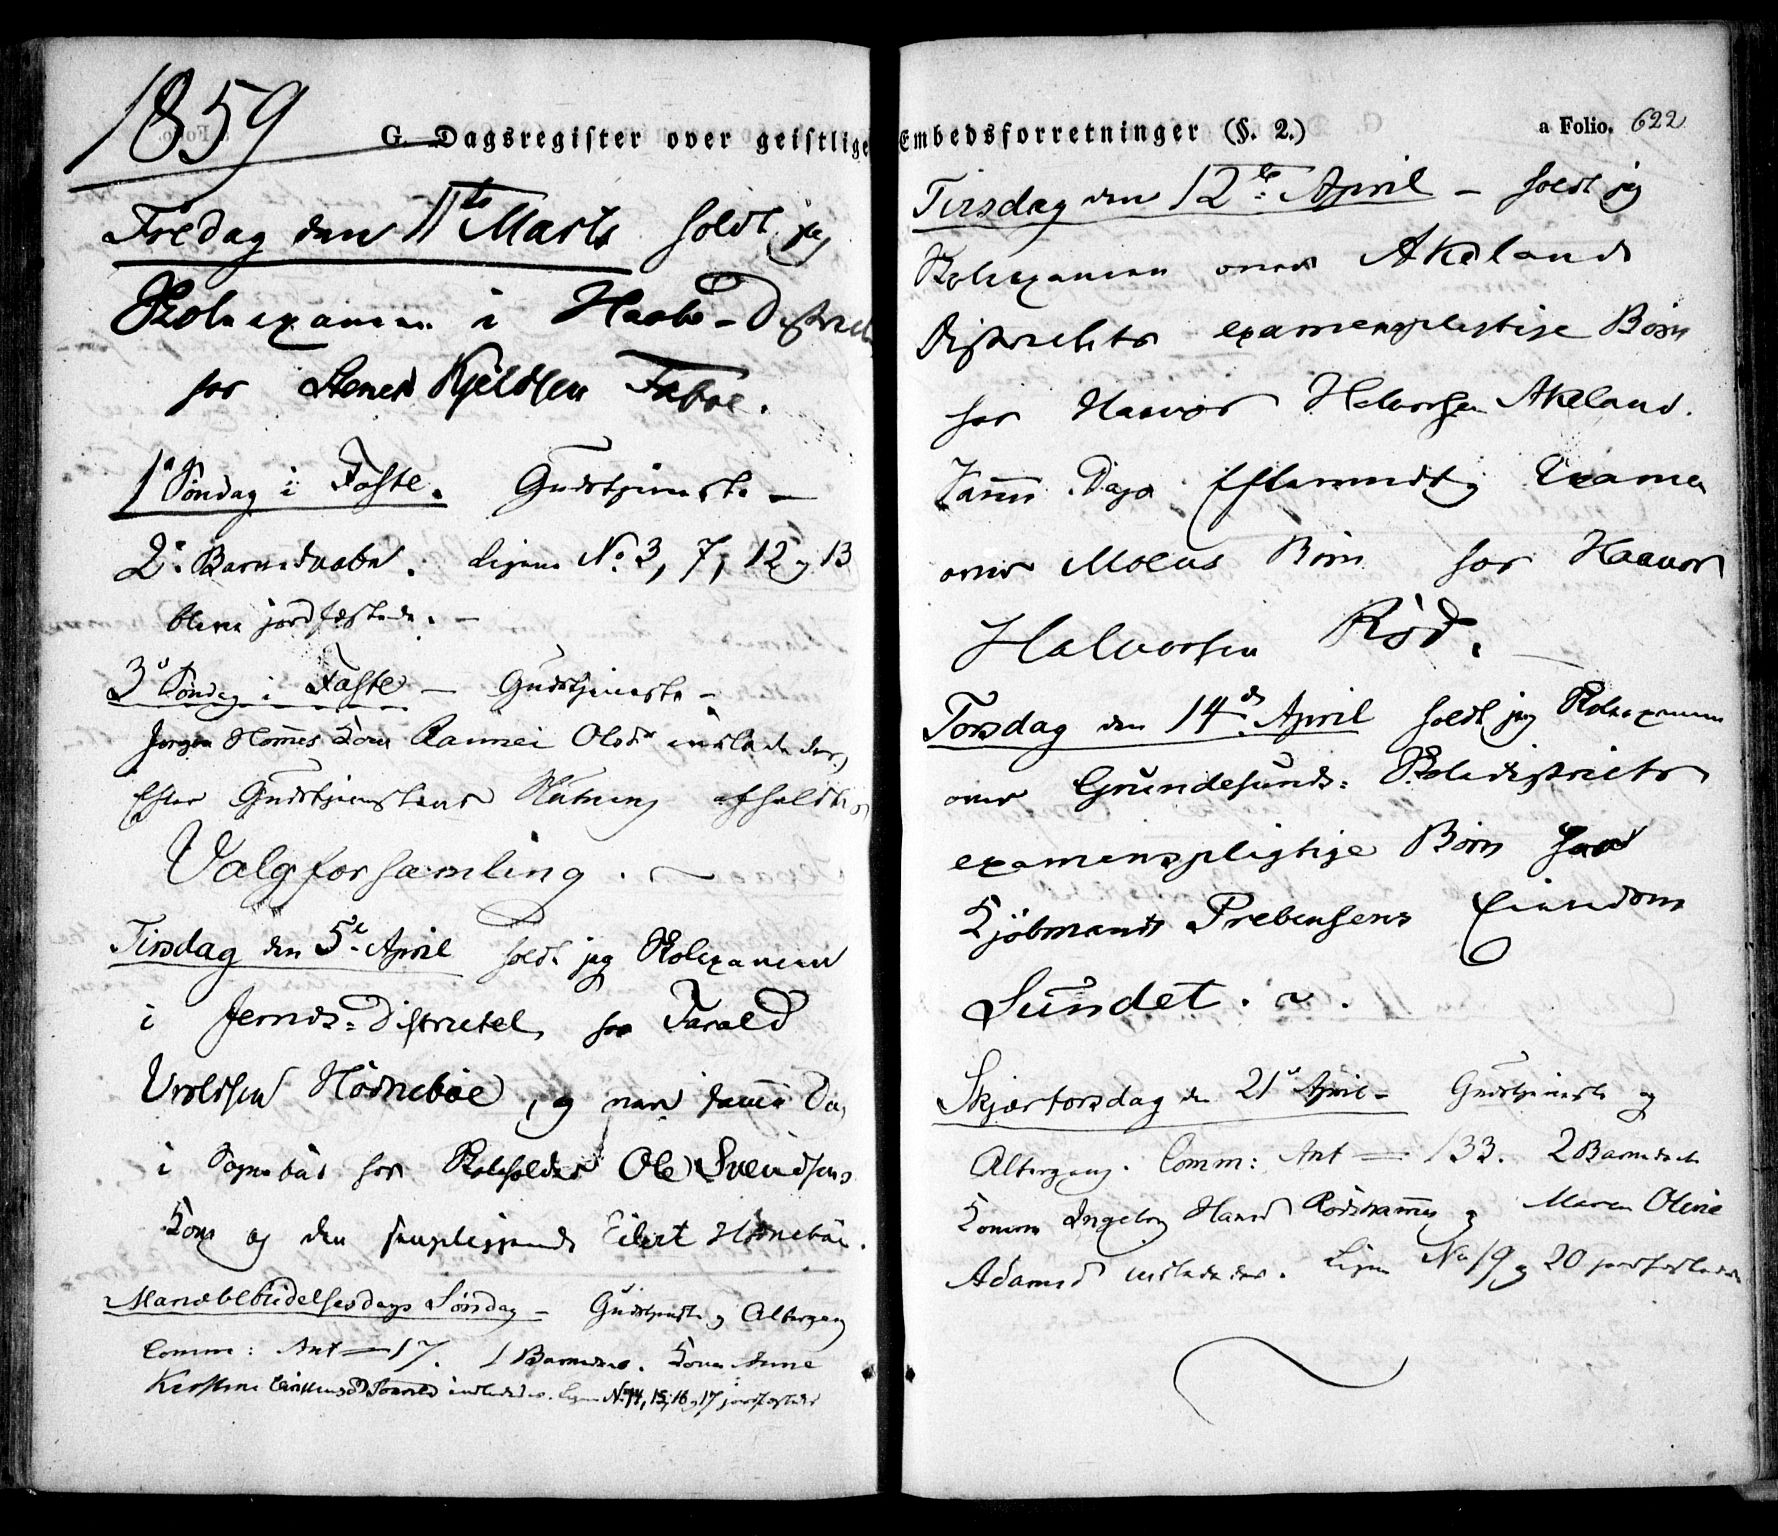 1859
G. Dagsregister over geistlige Embedsforretninger (§. 2.)
a Folio. 622
Fredag den 11te Marts holdt jeg
Skoleexamen i Haabo-District
hos Stener Kjeldsen Faboe.
1e Søndag i Faste. Gudstjeneste –
2e Barnedaabe. Ligene No. 3, 7, 12 og 13
bleve jordfæstede. –
3e Søndag i Faste – Gudstjeneste –
Jørgen Homes Kone Olsdr indlededes,
Efter Gudstjenestens Slutning afholdtes
Valgforsamling.
Tirsdag den 5te April holdt jeg Skolexamen
i Jernæs-District, hos Tarald
Hødnebøe, og paa samme Dag
i hos Skoleholder Ole Svendsens
Kone og den Eilert Hødnebøe.
Mariæ Bebudelsesdags Søndag – Gudstjeneste og Altergang
Comm: Ant = 17. 1 Barnedaab. Kone Anne
Kirstine indlededes. Ligene No 14, 15, 16 og 17 jordfæstede
Tirsdag den 12te April – holdt jeg
Skolexamen over Akeland
Districts examenspligtige Børn
hos Haavor Halvorsen Akeland.
Samme Dags Eftermiddag Examen
over Molens Børn hos Haavor
Halvorsen Rød.
Torsdag den 14de April holdt jeg Skolexamen
over Grundesunds Skoledistricts
examenspligtige Børn paa
Kjøbmand Prebensens Eiendom
Sundet.
Skjærtorsdag den 21e April – Gudstjeneste og
Altergang. Comm: Ant = 133. 2 Barnedaab
Konerne Ingeborg Hansd og Maren Olivie
Adamsd indlededes. Ligene No 19 og 20 jordfæstedes